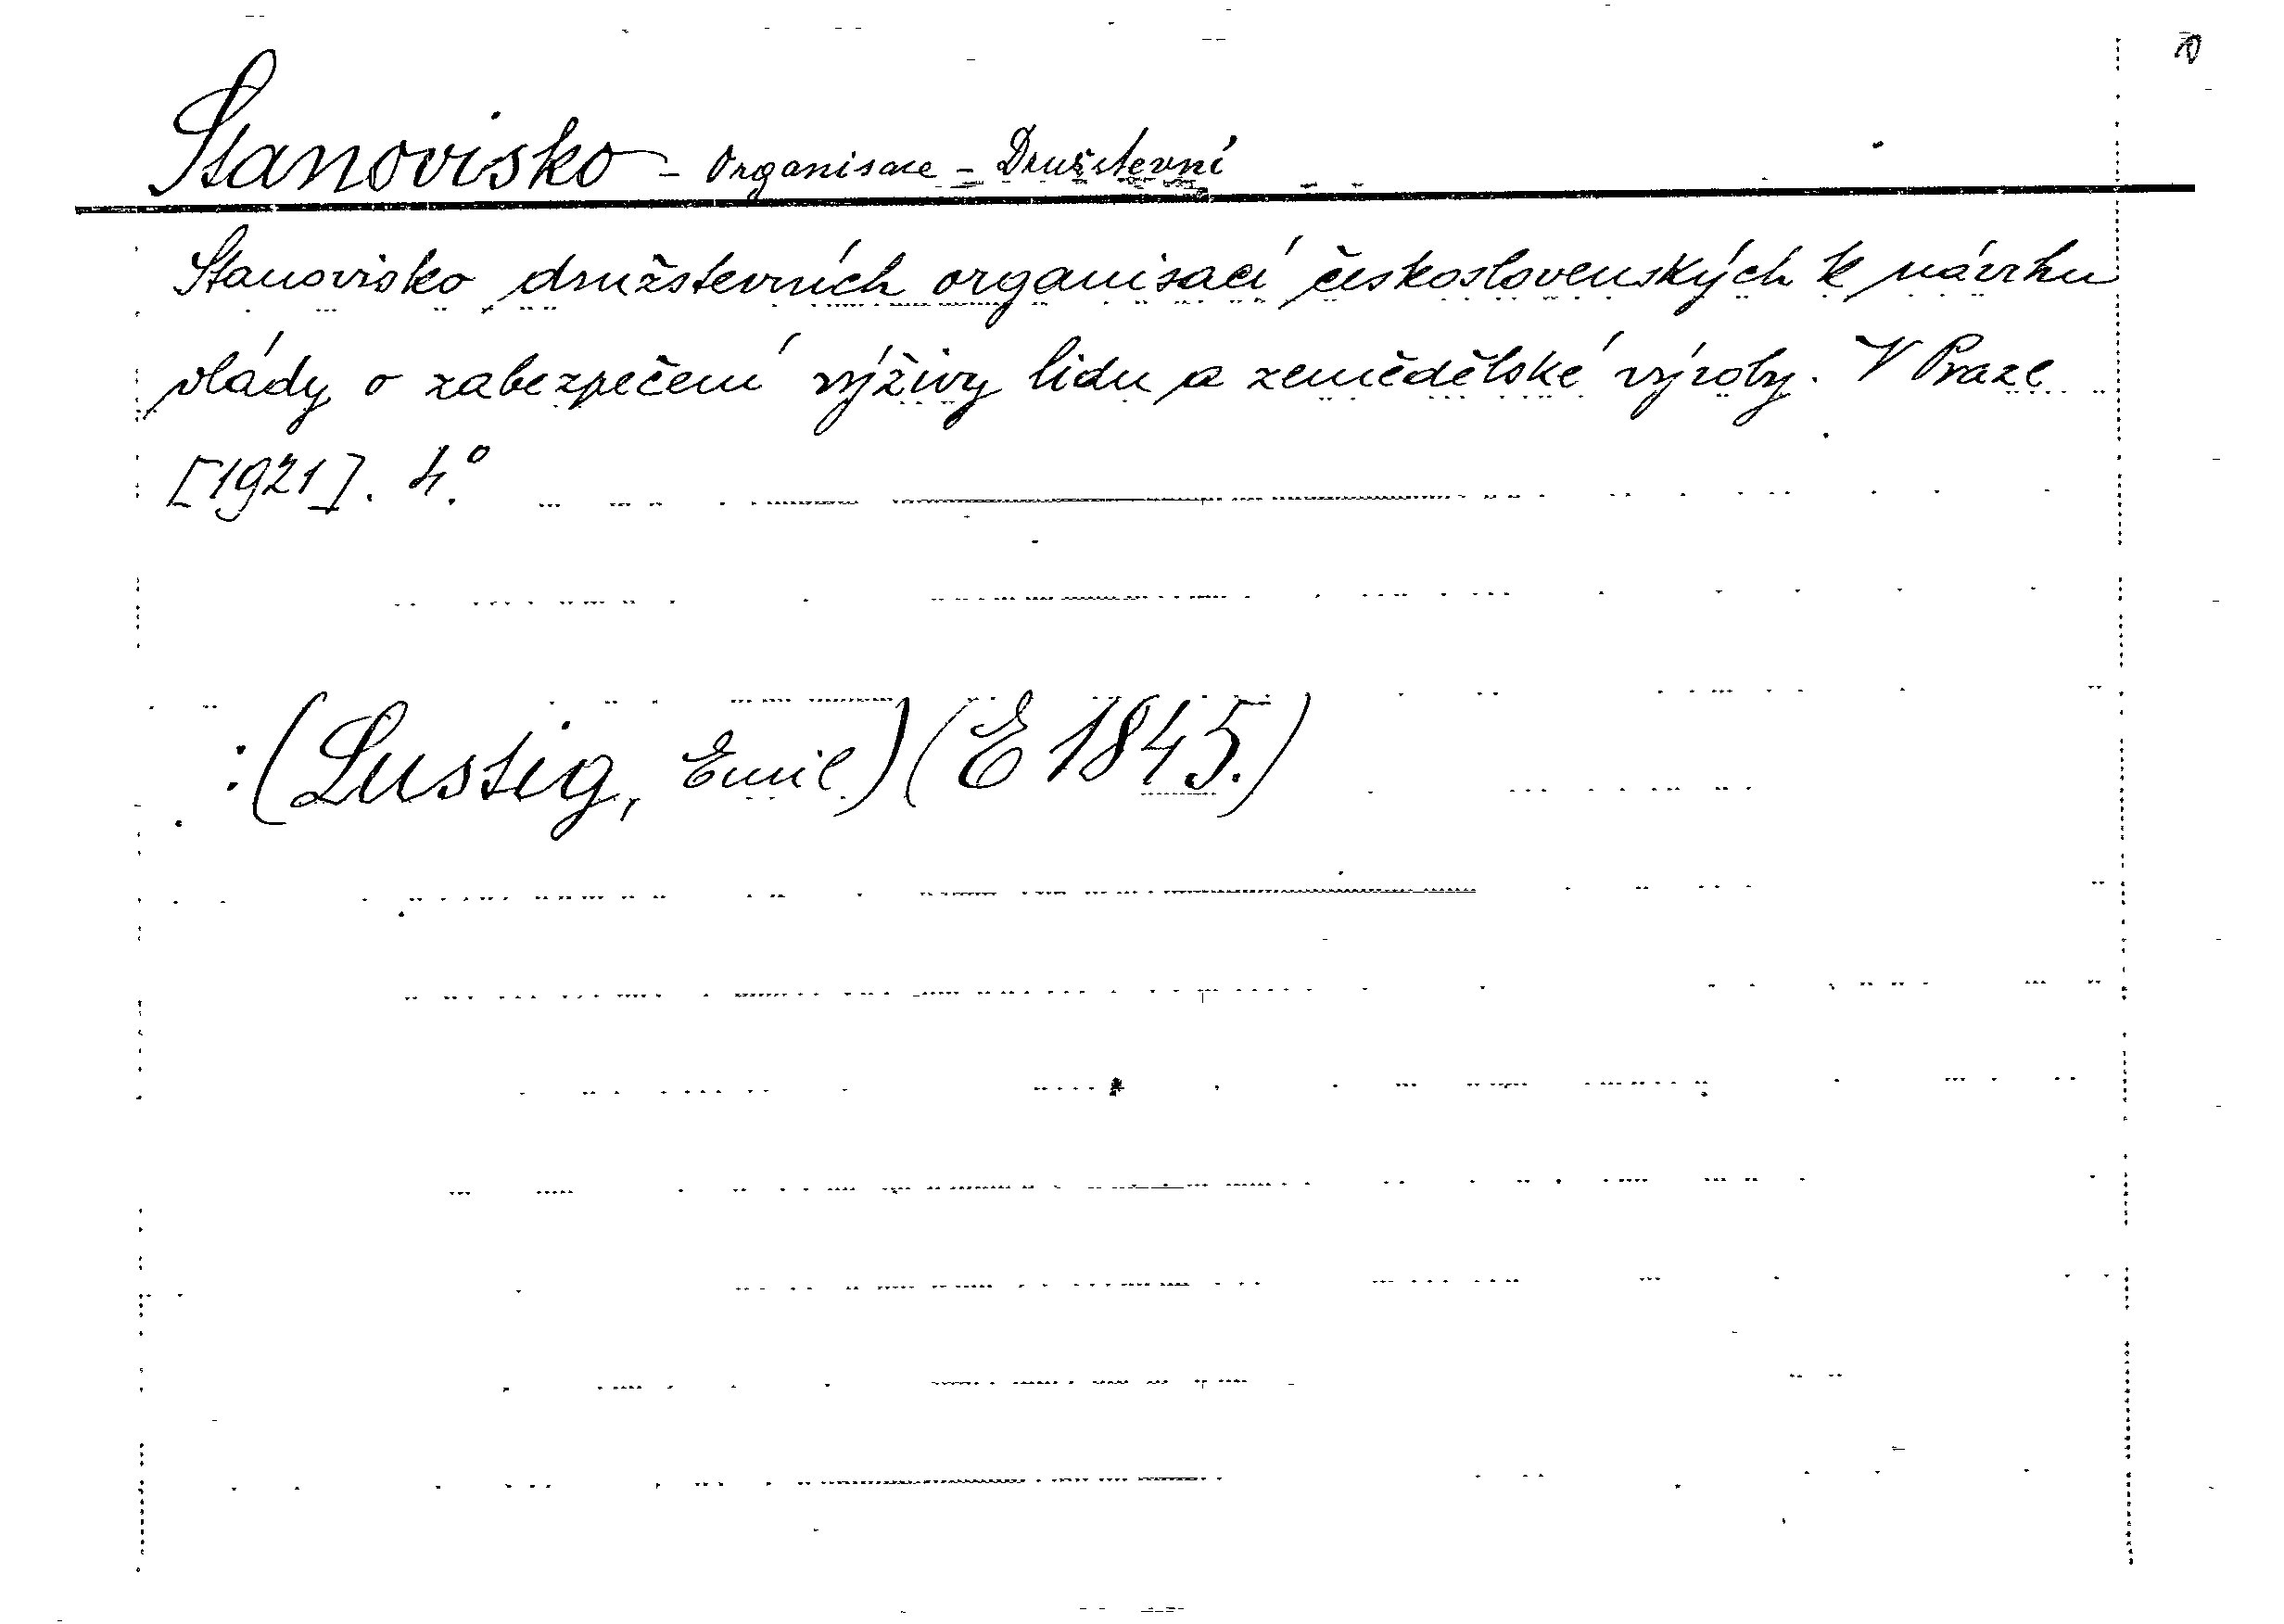 Stanovisko - Organisace - Družstevní
Stanovisko družstevních organisací československých k návrhu
vlády o zabezpečení výživy lidu a zemědělské výroby. V Praze
[1921]. 4.°
:(Lustig, Emil)(E 1845.)